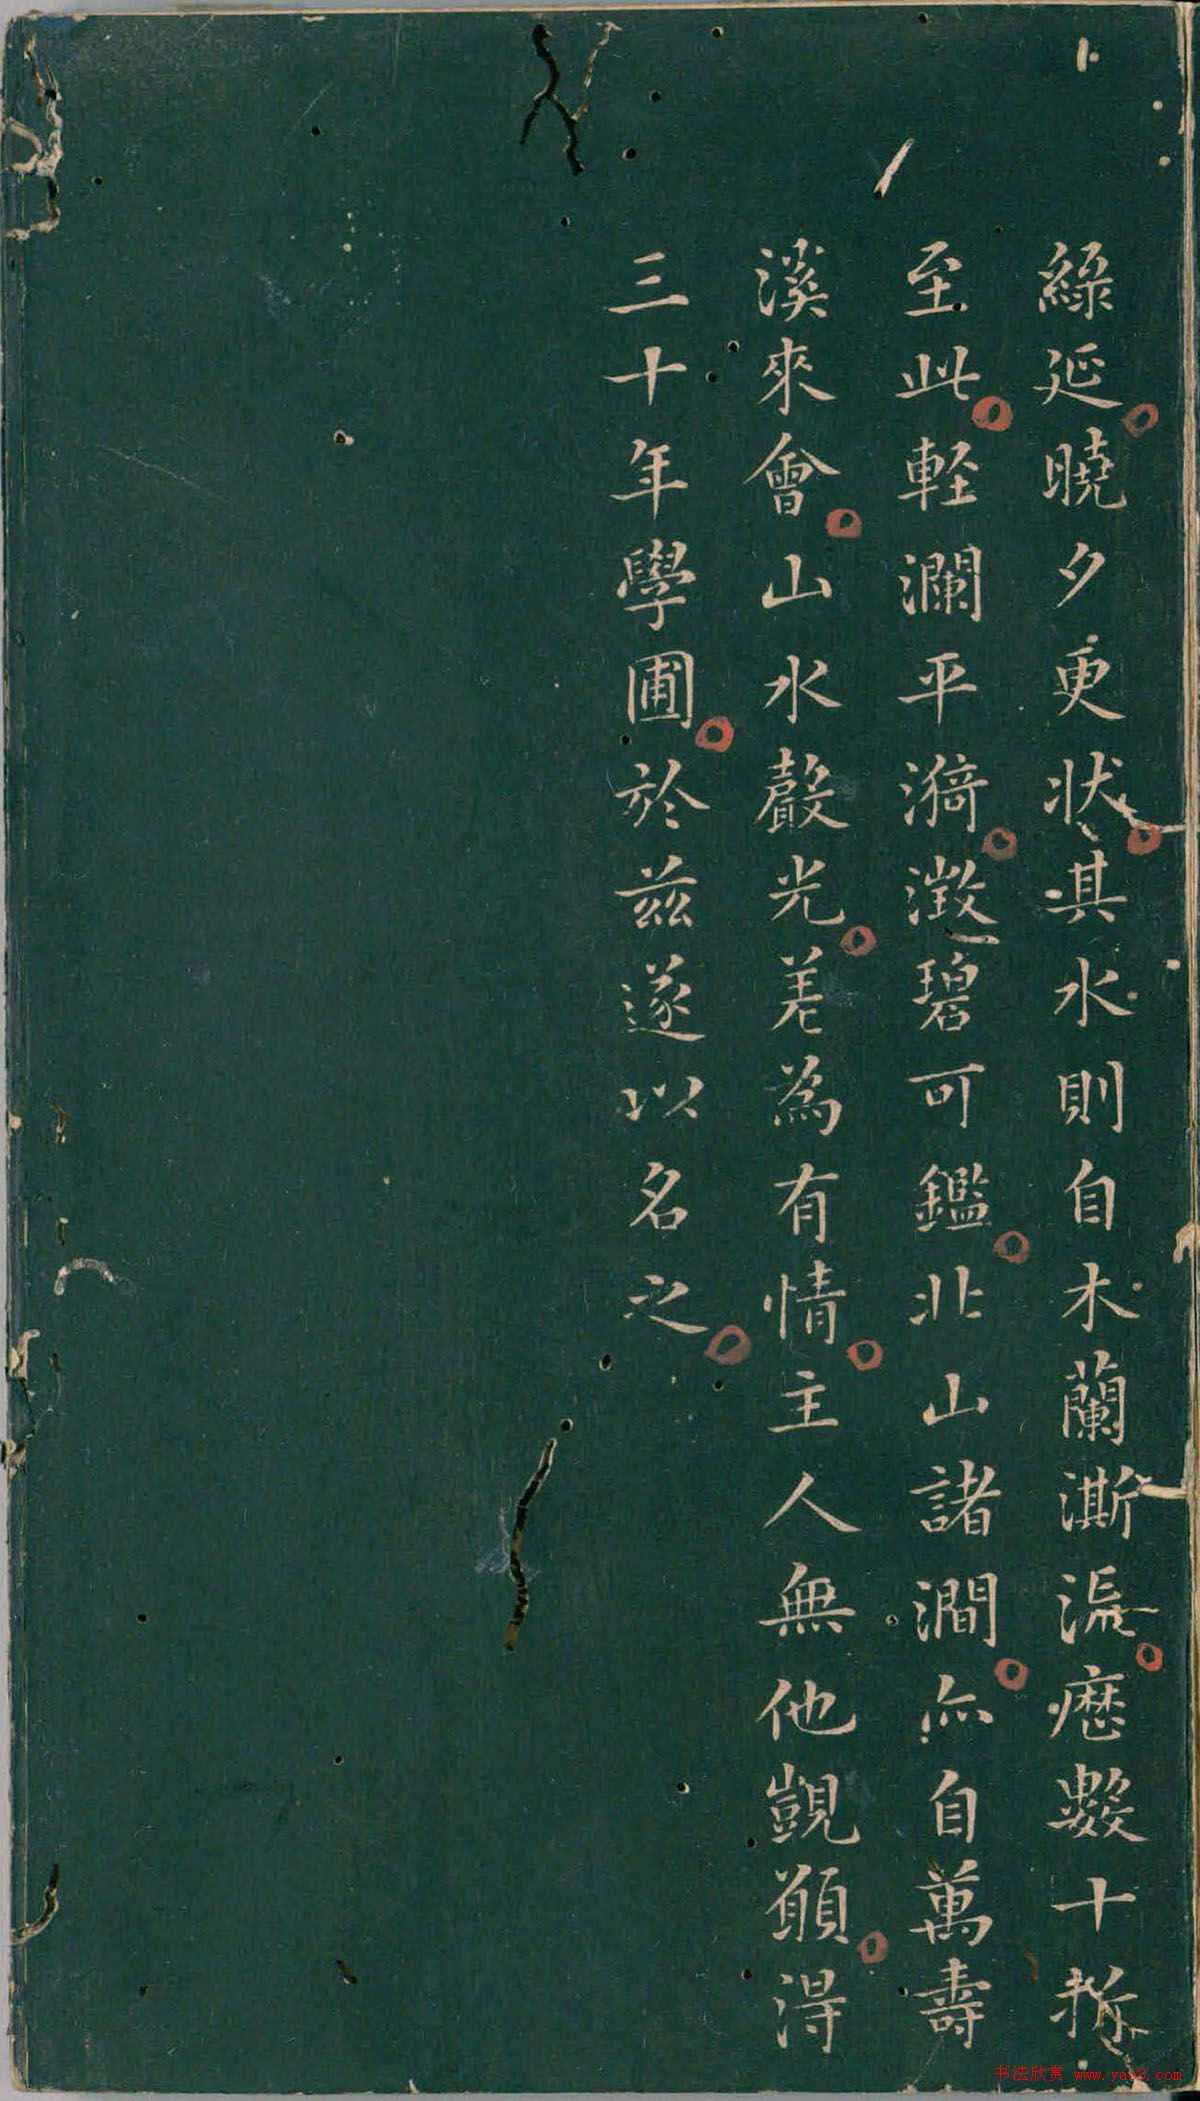 綠延曉夕更狀其水則自木蘭澌㵝歷數十折
至此軽瀾平漪澂碧可鑑北山諸澗亦自萬壽
溪來會山水聲光差為有情主人無他覬願得
三十年學圃於兹遂以名之
书法欣赏 www.yac8.com